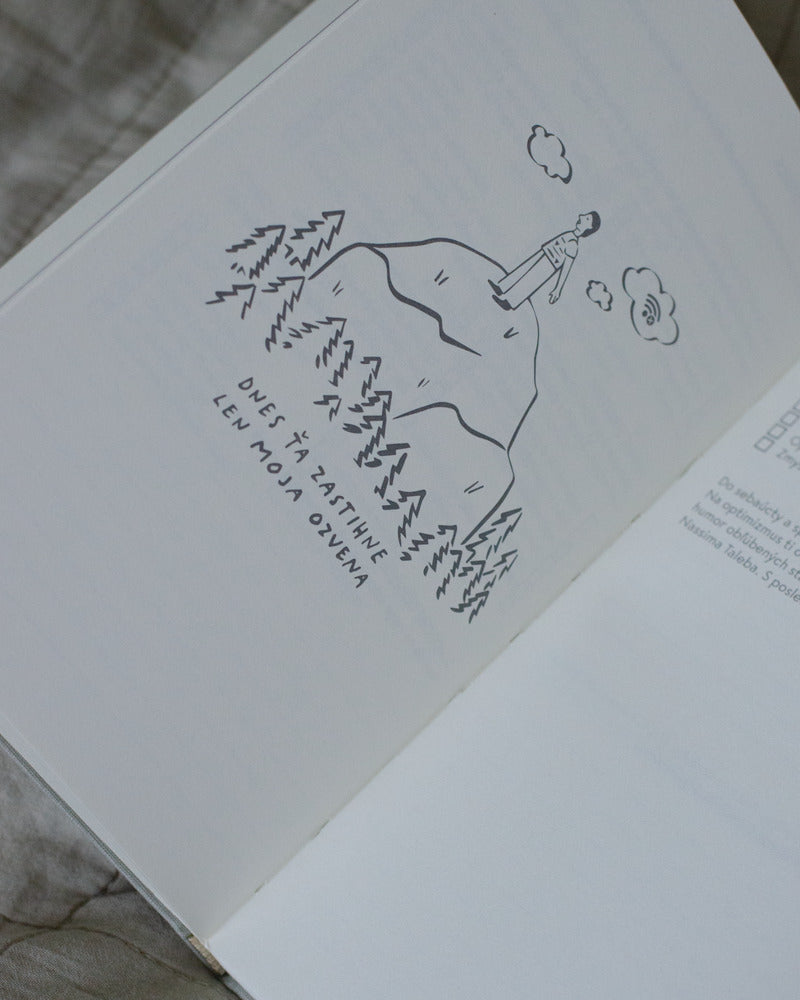 DNES ŤA ZASTIHNE
LEN MOJA OZVENA
Do sebaúcty a
Na optimizmus ti
humor obľúbených
Nassima Taleba. S